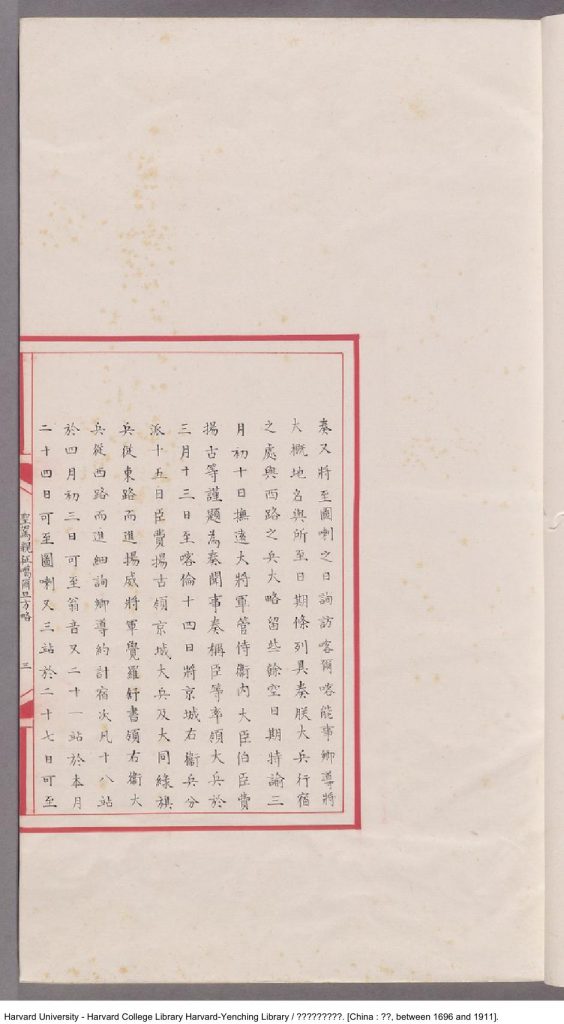 奏又將至圖喇之日詢訪喀爾喀能事鄉導將
大概地名與所至日期條列具奏朕大兵行宿
之處與西路之兵大略留些餘空日期特諭三
月初十日撫遠大將軍管侍衞內大臣伯臣費
揚古等謹題為奏聞事奏稱臣等率領大兵於
三月十三日至喀倫十四日將京城右衞兵分
派十五日臣費揚古領京城大兵及大同綠旗
兵從東路而進揚威將軍覺羅舒書領右衞大
兵從西路而進細詢鄉導約計宿次凡十八站
於四月初三日可至翁音又二十一站於本月
二十四日可至圖喇又三站於二十七日可至
聖駕親征噶爾旦方略
三
Harvard University - Harvard College Library Harvard-Yenching Library / ?????????. [China : ??, between 1696 and 1911].